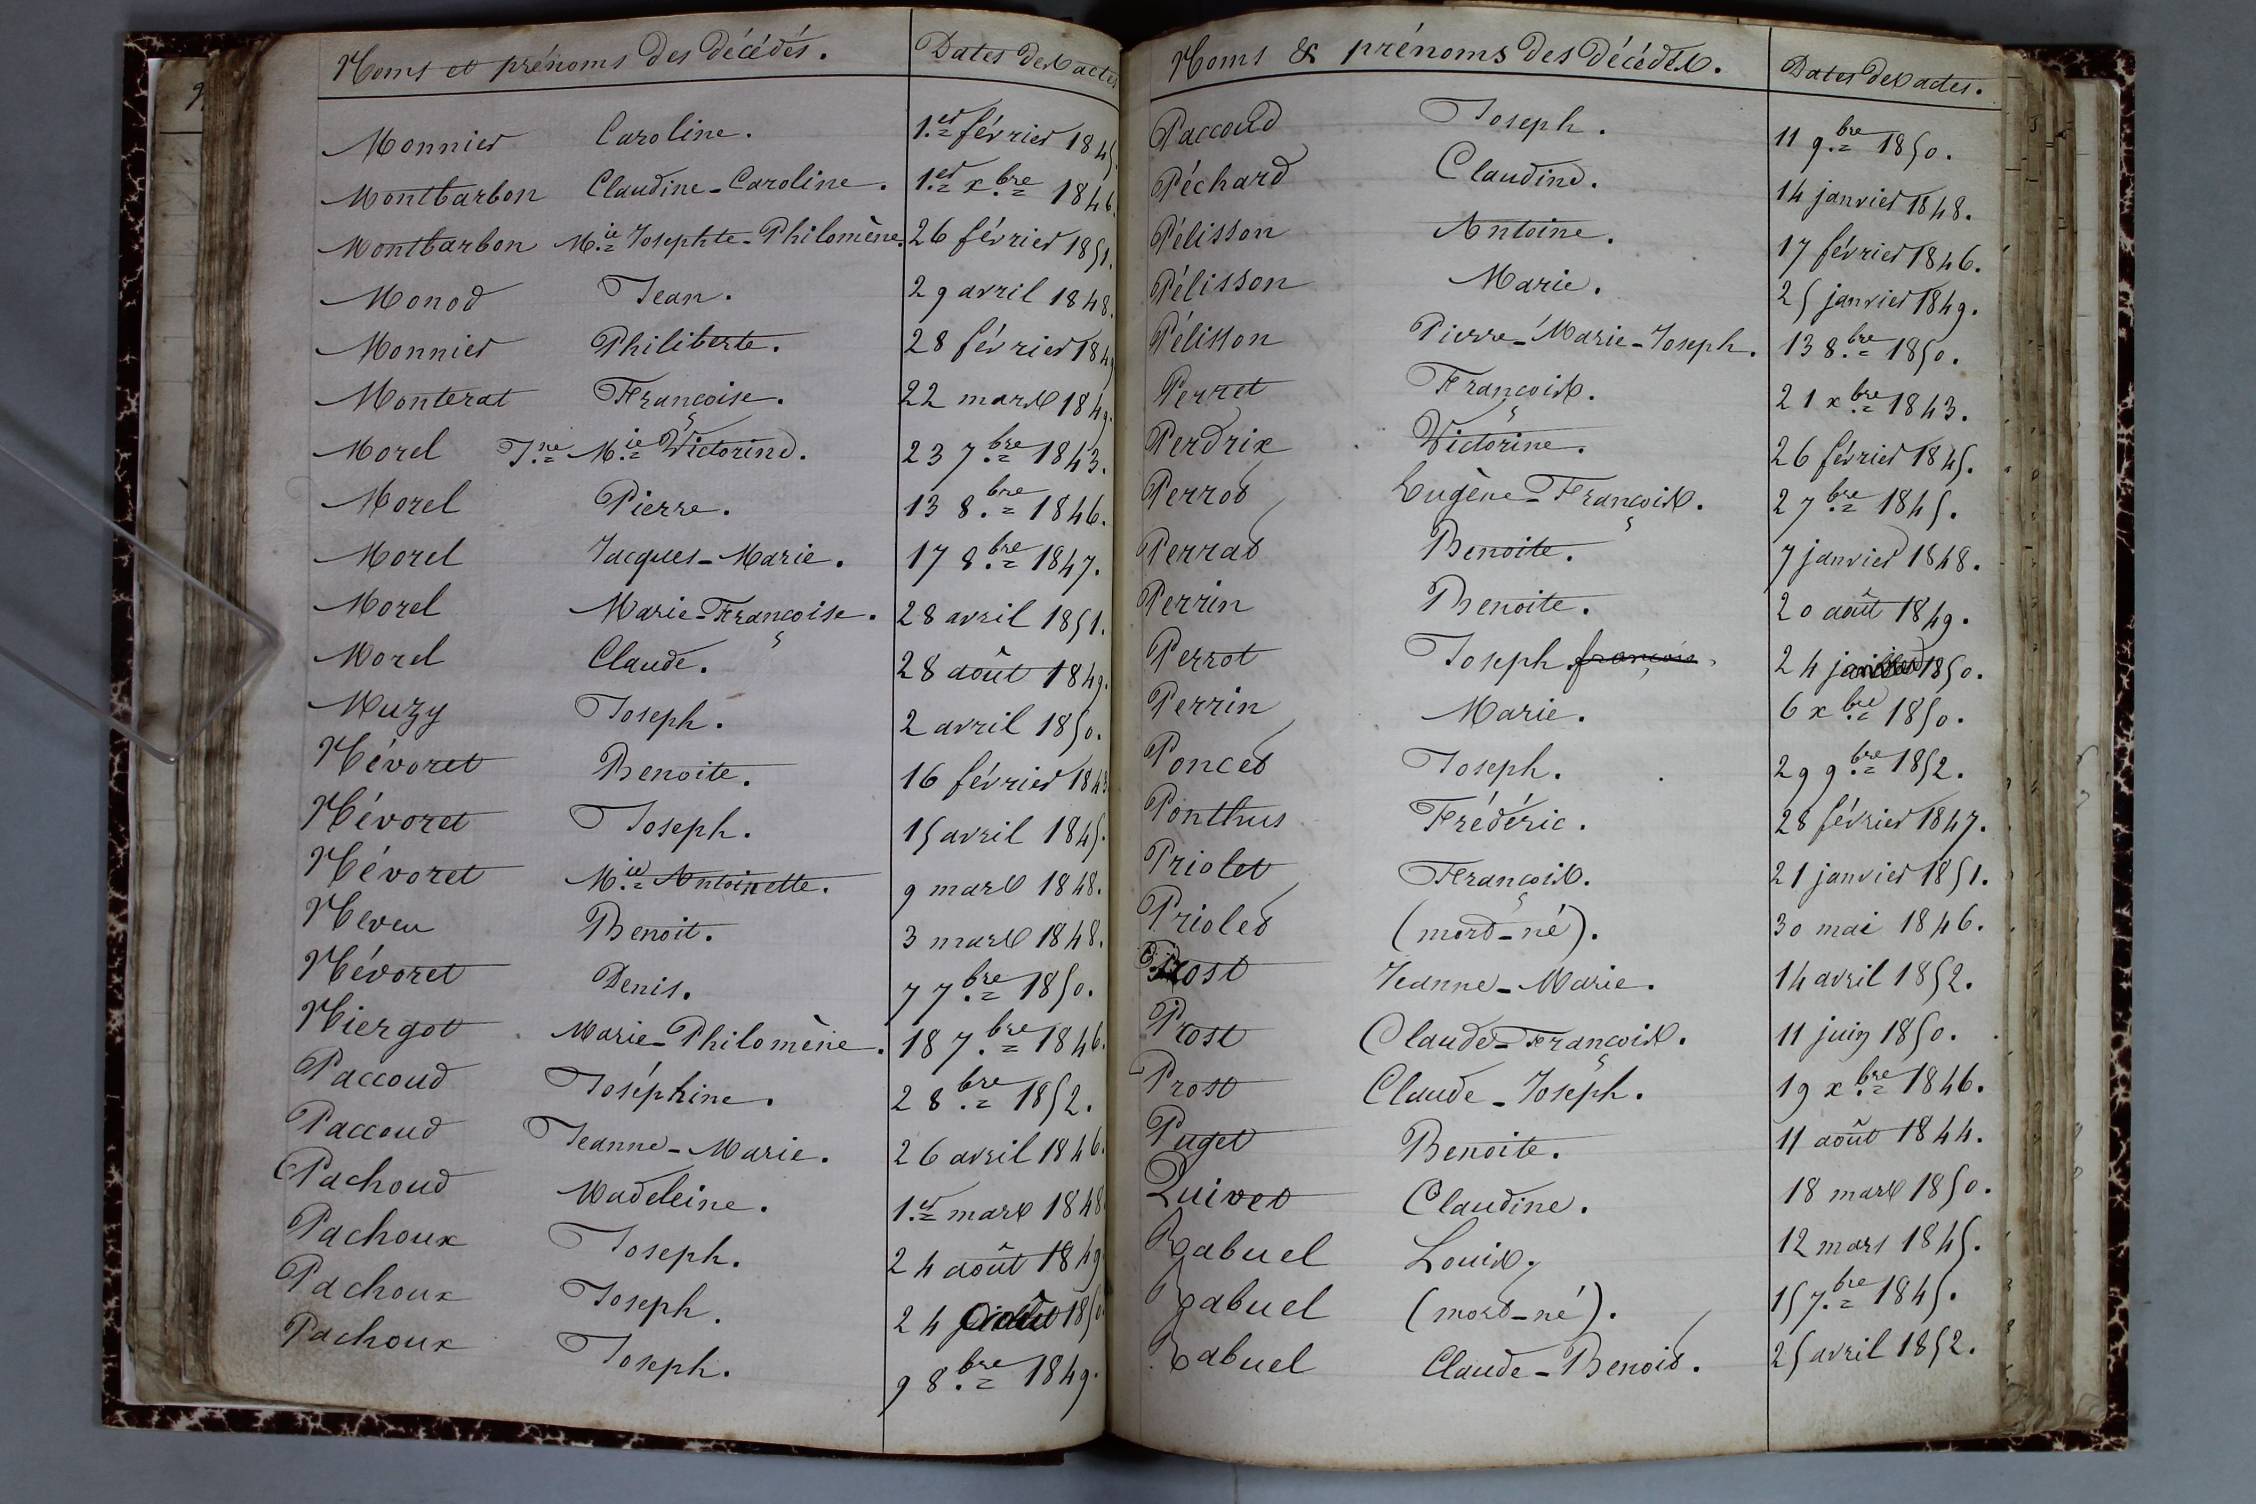 Noms et prénoms des décédés. Dates des actes
Monnier Caroline. 1.er février 1845.
Montbarbon Claudine-Caroline. 1.er xbre 1846.
Montbarbon M.ie Josephte-Philomène. 26 février 1851.
Monod Jean. 29 avril 1848.
Monnier Philiberte. 28 février 1849
Monterat Françoise. 22 mars 1849.
Morel J.ne M.ie Victorine. 23 7.bre 1843.
Morel Pierre. 13 8.bre 1846.
Morel Jacques-Marie. 17 8.bre 1847.
Morel Marie-Françoise. 28 avril 1851.
Morel Claude. 28 août 1849.
Muzy Joseph. 2 avril 1850.
Névoret Benoite. 16 février 1843
Névoret Joseph. 15 avril 1845.
Névoret M.ie Antoinette. 9 mars 1848.
Neveu Benoit. 3 mars 1848.
Névoret Denis. 7 7.bre 1850.
Niergot Marie-Philomène. 18 7.bre 1846.
Paccoud Joséphine. 2 8.bre 1852.
Paccoud Jeanne-Marie. 26 avril 1846.
Pachoud Madeleine. 1.er mars 1848
Pachoux Joseph. 24 août 1849
Pachoux Joseph. 24 1850
Pachoux Joseph. 9 8.bre 1849.
Noms & prénoms des décédés. Dates des actes.
Paccoud Joseph. 11 9.bre 1850.
Péchard Claudine. 14 janvier 1848.
Pélisson Antoine. 17 février 1846.
Pélisson Marie. 25 janvier 1849.
Pélisson Pierre-Marie-Joseph. 13 8.bre 1850.
Perret François. 21 x.bre 1843.
Perdrix Victorine. 26 février 1845.
Perrot Eugène-François. 2 7.bre 1845.
Perrat Benoite. 7 janvier 1848.
Perrin Benoite. 20 août 1849.
Perrot Joseph françois. 24 1850.
Perrin Marie. 6 x.bre 1850.
Poncet Joseph. 29 9.bre 1852.
Ponthus Frédéric. 28 février 1847.
Priolet François. 21 janvier 1851.
Priolet (mort-né). 30 mai 1846.
Prost Jeanne-Marie. 14 avril 1852.
Prost Claude-François. 11 juin 1850.
Prost Claude-Joseph. 19 x.bre 1846.
Puget Benoite. 11 août 1844.
Quivet Claudine. 18 mars 1850.
Rabuel Louis. 12 mars 1845.
Rabuel (mort-né). 15 7.bre 1845.
Rabuel Claude-Benoit. 25 avril 1852.